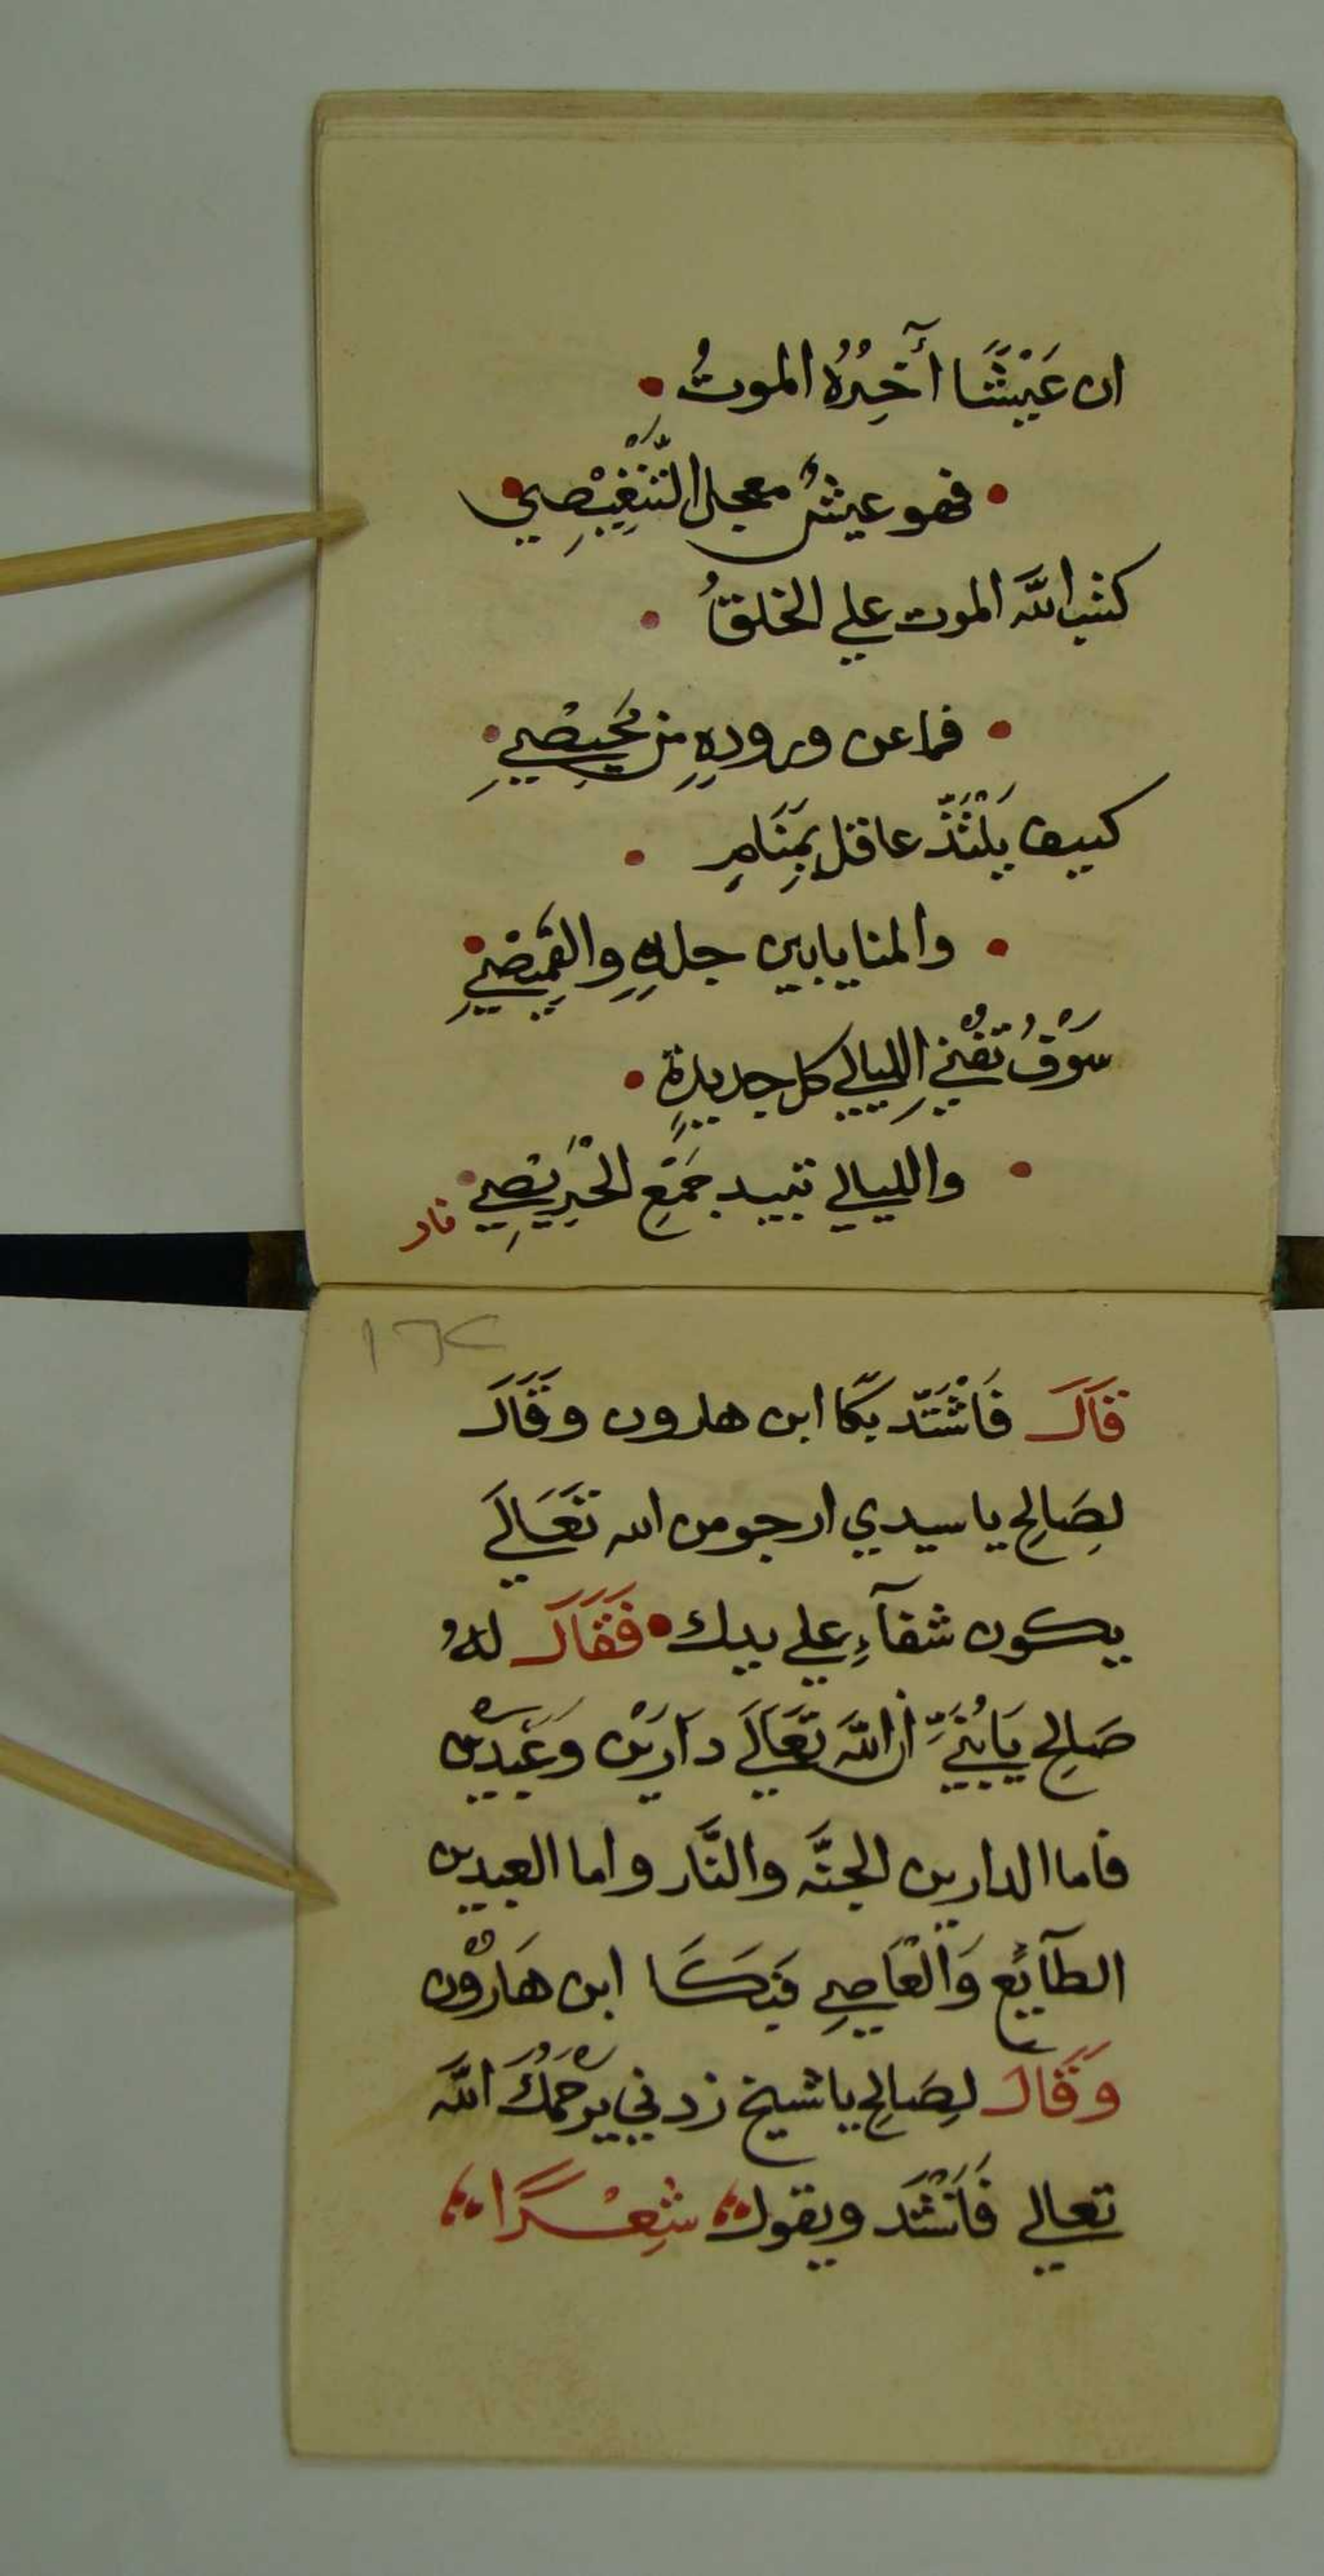 ان عَيْشًا أَخِرُهُ الموتُ •
• فهو عيشٌ معجل التَّنْغِيْصِي •
كتب الله الموت علي الخلقُ •
• فما عن ورودهِ من مَحِيْصِي •
كييف يَلْتَذّ عاقل بِمَنَامٍ •
• والمنايا بين جلدهِ والقمِيْصِي •
سَوْفُ تفْنِي الليالي كل جديدةٍ •
• والليالي تبيد جَمْعِ الحْرِيْصِي •
قال
قَالَ فَاشْتَدّ بكَا ابن هارون وقَالَ
لِصَالِحِ يا سيدي ارجو من الله تَعَالَي
يكون شفآءِ علي يدك • فَقَالَ لهُ
صَالِحِ يَابُنَيِّ اِن اللهَ تَعَالَي دَارَيْن وَعَبْدَيْن
فاما الدارين الجنَّه والنَّار واما العبدين
الطآئِع وَالْعَاصِي فَبَكَا ابن هَارُوْن
وَقَالَ لِصَالِحِ يا شيخ زدني يَرْحَمُكَ اللهَ
تعالي فَاَنْشَد ويقول شِعْرًا